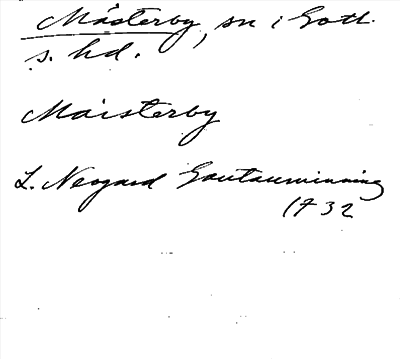 Mästerby, sn i Gotl.
s. hd.
Maisterby
L. Neogard Gautauminning
1732